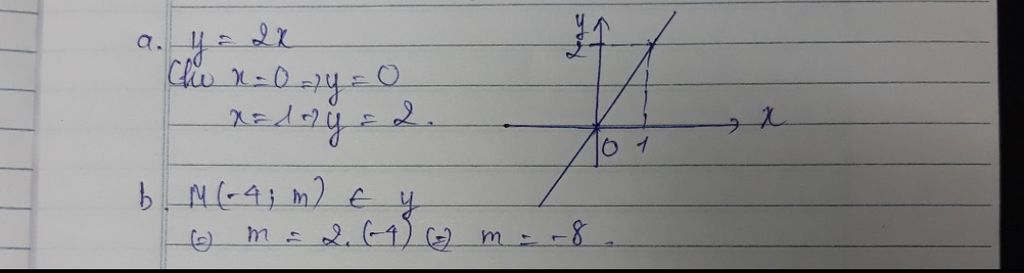 a. y = 2x
Cho x=0 => y = 0
x=1 => y = 2.
y
2
0 1
x
b. M(-4; m) ∈ y
<=> m = 2.(-4) <=> m = -8.